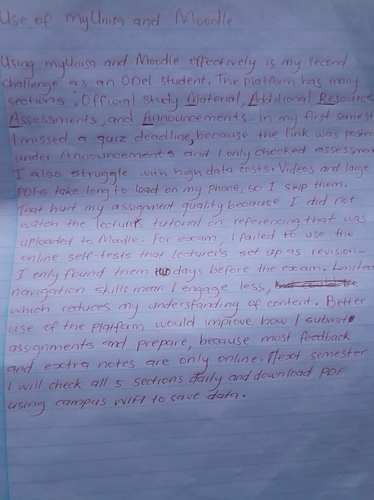 Use of myUnisa and Moodle
Using myUnisa and Moodle effectively is my second
challenge as an ODel student. The platform has many
sections: Official Study Material, Additional Resource
Assessments, and Announcements. In my first semest
I missed a quiz deadline, because the link was posted
under Announcements and I only checked assessmen
I also struggle with high data costs. Videos and large
PDFs take long to load on my phone, so I skip them.
That hurt my assignment quality because I did not
watch the lecture's tutorial on referencing that was
uploaded to Moodle. For exam, I failed to use the
online self-tests that lecturer's set up as revision.
I only found them two days before the exam. Limited
navigation skills mean I engage less,
which reduces my understanding of content. Better
use of the platform would improve how I submit
assignments and prepare, because most feedback
and extra notes are only online. Next semester
I will check all 5 sections daily and download PDF
using campus WIFI to save data.